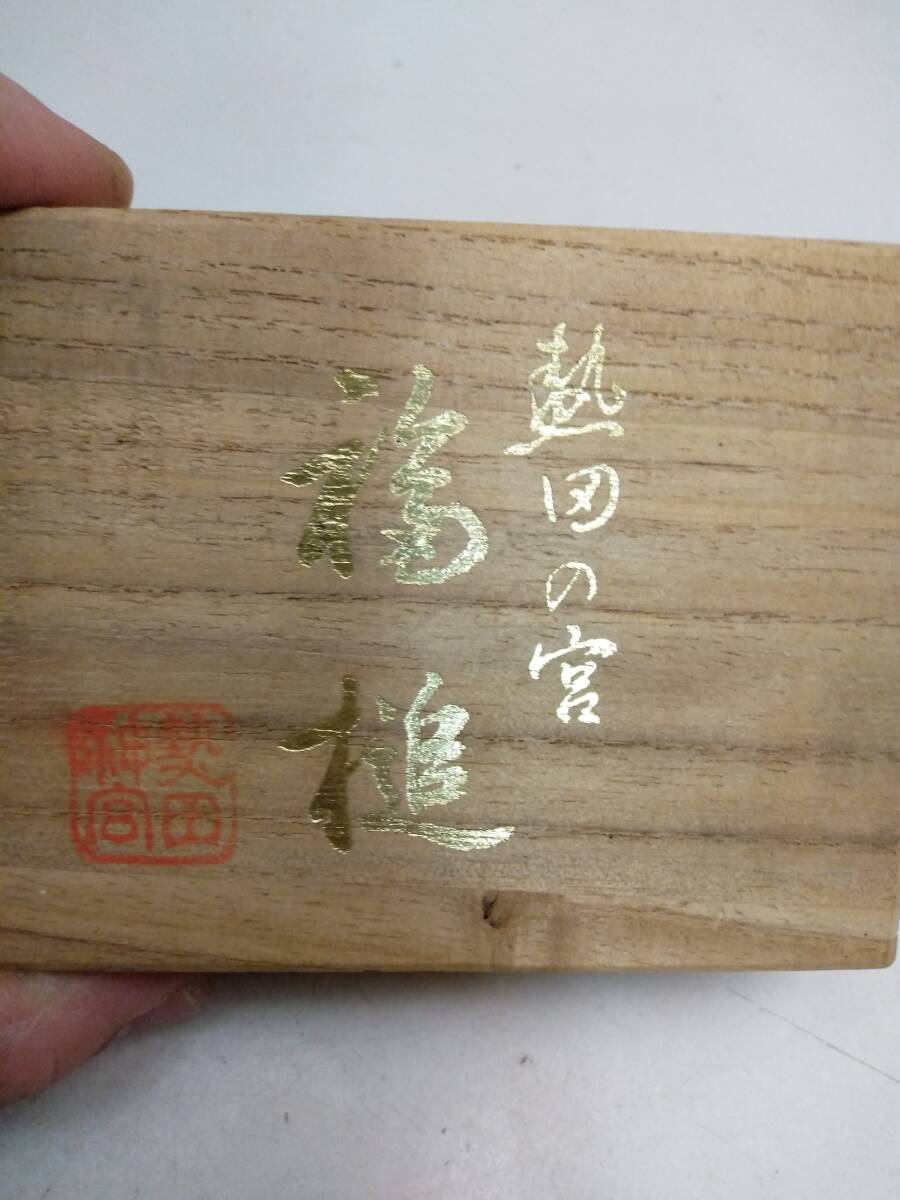 熱田の宮
福槌
熱田
神宮